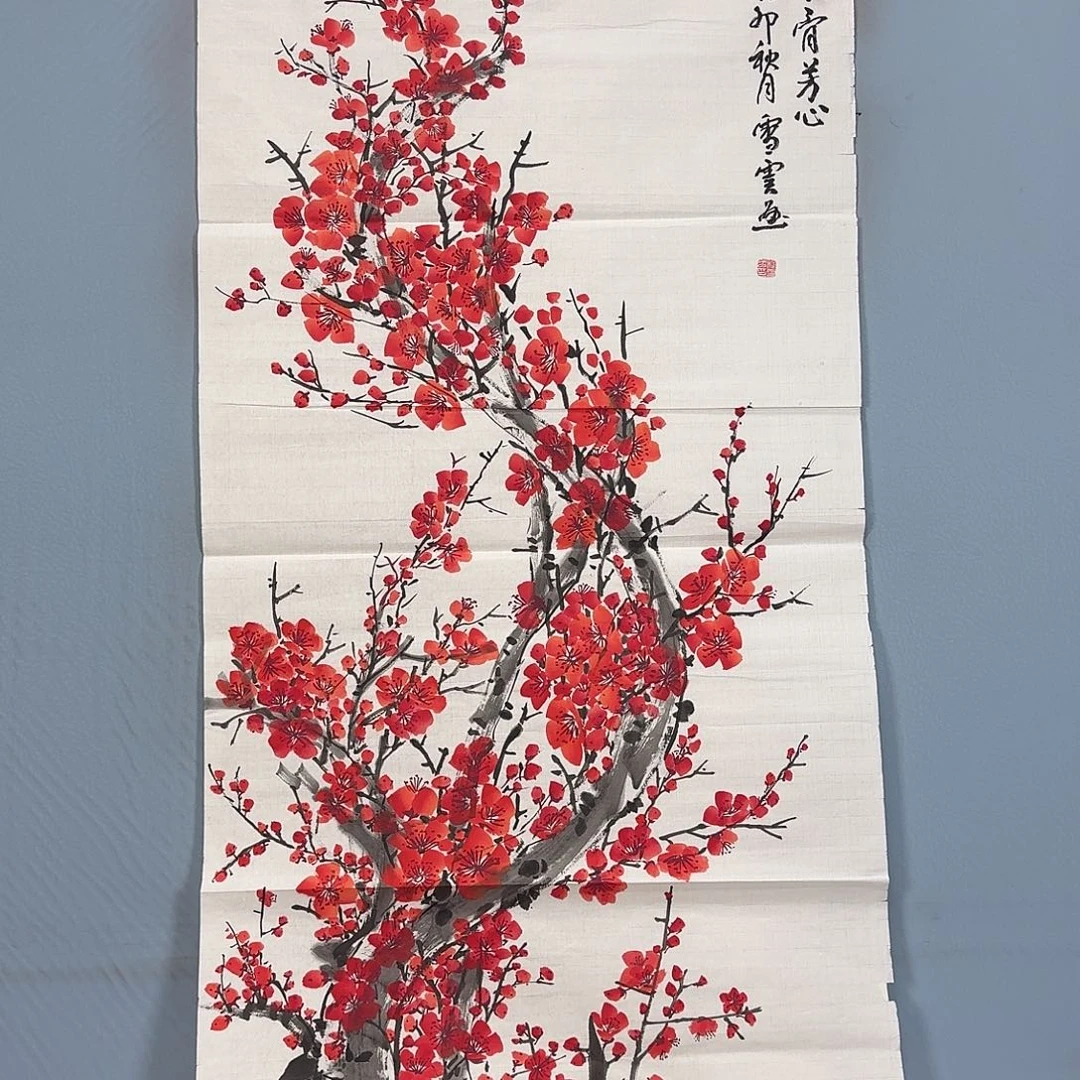 骨芳心
卯秋月雪雲画